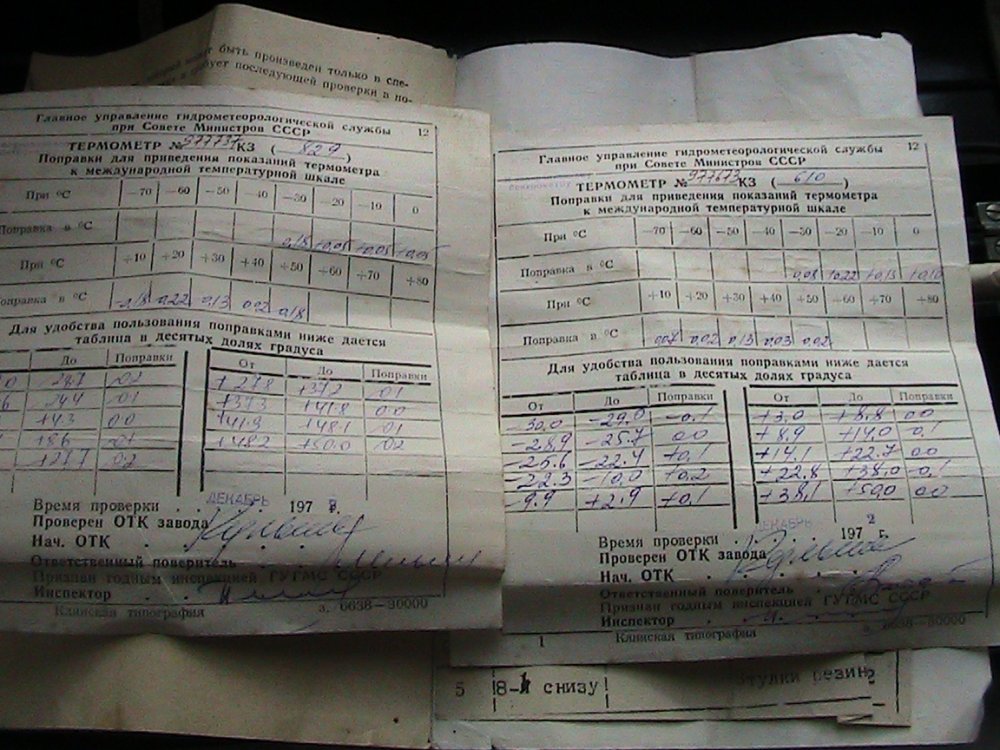 быть произведен только в спе-
бует последующей проверки в по-
Главное управление гидрометеорологической службы
при Совете Министров СССР
12
ТЕРМОМЕТР № 977737 КЗ ( 829 )
Поправки для приведения показаний термометра
к международной температурной шкале
При °С −70 −60 −50 −40 −30 −20 −10 0
Поправка в °С +0,05 +0,05 +0,05
При °С +10 +20 +30 +40 +50 +60 +70 +80
Поправка в °С -0,13 0,22 0,13 0,02 0,18
Для удобства пользования поправками ниже дается
таблица в десятых долях градуса
До Поправки От До Поправки
02 +27.8 +37.2 01
24.4 01 +37.3 +41.8 00
+4.3 00 +41.9 +48.1 01
+9.6 01 +48.2 +50.0 02
+27.7 02
Время проверки . . ДЕКАБРЬ 197 г.
Проверен ОТК завода
Нач. ОТК
Ответственный поверитель
Признан годным инспекцией ГУГМС СССР
Инспектор
Клинская типография з. 6638—30000
Главное управление гидрометеорологической службы
при Совете Министров СССР
12
ТЕРМОМЕТР № 977673 КЗ ( 610 )
Поправки для приведения показаний термометра
к международной температурной шкале
При °С −70 −60 −50 −40 −30 −20 −10 0
Поправка в °С 0,08 +0,22 +0,13 +0,10
При °С +10 +20 +30 +40 +50 +60 +70 +80
Поправка в °С 0,07 0,02 0,13 0,03 0,02
Для удобства пользования поправками ниже дается
таблица в десятых долях градуса
От До Поправки От До Поправки
−30,0 −29,0 −0,1 +3,0 +8,8 00
−28,9 −25.7 00 +8,9 +14,0 0,1
−25.6 −22.4 +0,1 +14,1 +22.7 00
−22.3 −10,0 +0,2 +22.8 +38,0 -0,1
−9.9 +2.9 +0,1 +38,1 +50,0 00
Время проверки . ДЕКАБРЬ 1972 г.
Проверен ОТК завода
Нач. ОТК
Ответственный поверитель
Признан годным инспекцией ГУГМС СССР
Инспектор
1 Клинская типография з. 6638—30000
5 8-й снизу! Втулки резин